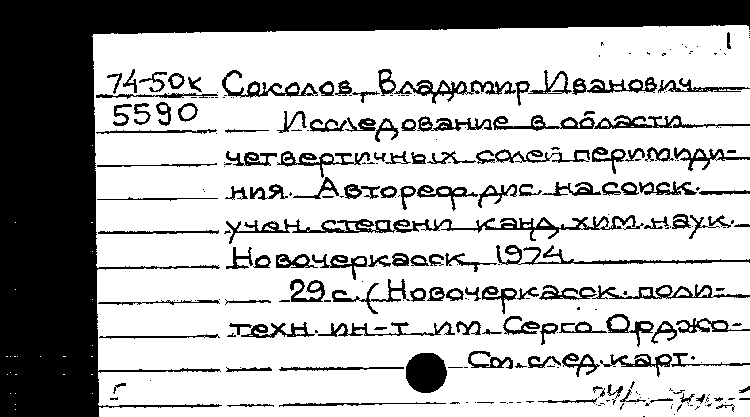 1
74-50к Соколов, Владимир Иванович
5590 Исследование в области
четвертичных солей перимиди-
ния. Автореф. дис. на соиск.
учен. степени канд. хим. наук.
Новочеркасск, 1974
29 с. (Новочеркасск. поли-
техн. ин-т им. Серго Орджо-
См. след. карт.